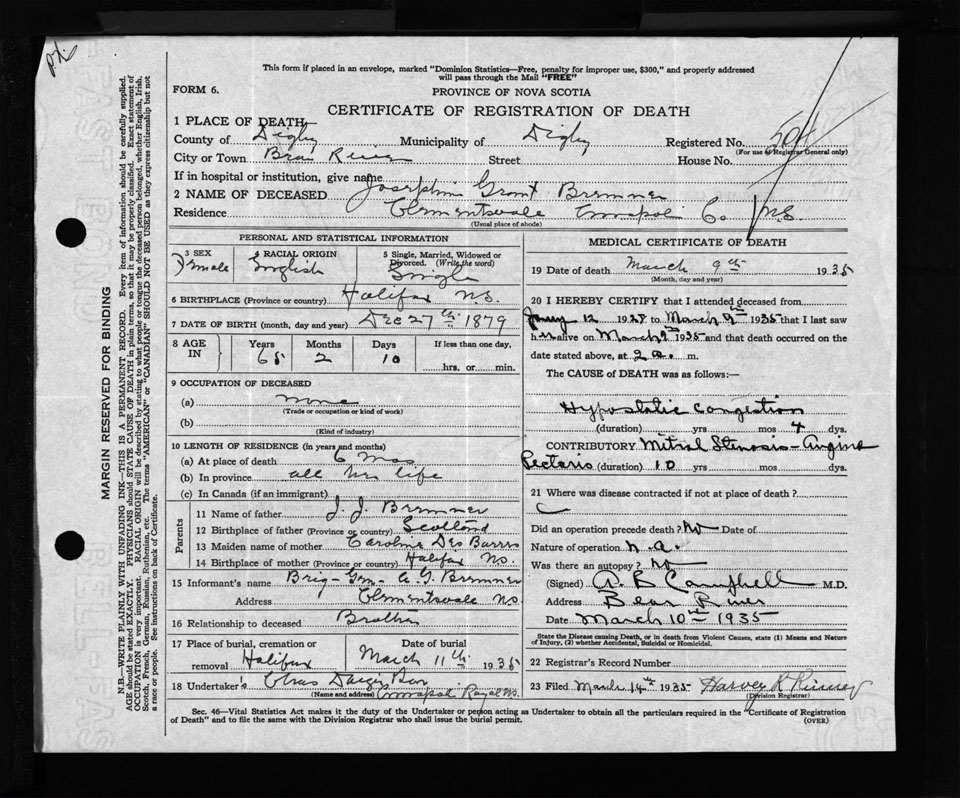 This form if placed in an envelope, marked "Dominion Statistics—Free, penalty for improper use, $300," and properly addressed
will pass through the Mail "FREE"
FORM 6.
PROVINCE OF NOVA SCOTIA
CERTIFICATE OF REGISTRATION OF DEATH
1 PLACE OF DEATH,
County of Digby Municipality of Digby Registered No. 504
(For use of Registrar General only)
City or Town Bear River Street House No.
If in hospital or institution, give name
2 NAME OF DECEASED Josephin Grant Bremner
Residence Clementsvale Annapolis Co. N.S.
(Usual place of abode)
PERSONAL AND STATISTICAL INFORMATION
3 SEX Female
4 RACIAL ORIGIN English
5 Single, Married, Widowed or Divorced. (Write the word) Single
6 BIRTHPLACE (Province or country) Halifax N.S.
7 DATE OF BIRTH (month, day and year) Dec 27th 1879
8 AGE IN Years 65 Months 2 Days 10 If less than one day, hrs. or min.
9 OCCUPATION OF DECEASED
(a) none
(Trade or occupation or kind of work)
(b)
(Kind of industry)
10 LENGTH OF RESIDENCE (in years and months)
(a) At place of death 6 Mos
(b) In province all her life
(c) In Canada (if an immigrant)
Parents
11 Name of father J. J. Bremner
12 Birthplace of father (Province or country) Scotland
13 Maiden name of mother Caroline Des Barres
14 Birthplace of mother (Province or country) Halifax N.S.
15 Informant's name Brig-Gen- A. G. Bremner
Address Clementsvale N.S.
16 Relationship to deceased Brother
17 Place of burial, cremation or removal Halifax
Date of burial March 11th 1935
18 Undertaker's Chas
(Name and address) Annapolis Royal N.S.
MEDICAL CERTIFICATE OF DEATH
19 Date of death March 9th 1935
(Month, day and year)
20 I HEREBY CERTIFY that I attended deceased from
12 to March 9th 1935 that I last saw
her alive on March 9th 1935 and that death occurred on the
date stated above, at 2 a. m.
The CAUSE of DEATH was as follows:—
Hypostatic Congestion
(duration) yrs mos 4 dys.
CONTRIBUTORY Mitral Stenosis - Angina
Pectoris (duration) 10 yrs mos dys.
21 Where was disease contracted if not at place of death?
Did an operation precede death? No Date of
Nature of operation n.a.
Was there an autopsy? No
(Signed) A. B Campbell M.D.
Address Bear River
Date March 10th 1935
State the Disease causing Death, or in death from Violent Causes, state (1) Means and Nature
of Injury, (2) whether Accidental, Suicidal or Homicidal.
22 Registrar's Record Number
23 Filed March 14th 1935 Harvey
(Division Registrar)
Sec. 46—Vital Statistics Act makes it the duty of the Undertaker or person acting as Undertaker to obtain all the particulars required in the "Certificate of Registration
of Death" and to file the same with the Division Registrar who shall issue the burial permit.
(OVER)
MARGIN RESERVED FOR BINDING
N.B.—WRITE PLAINLY WITH UNFADING INK—THIS IS A PERMANENT RECORD. Every item of information should be carefully supplied.
AGE should be stated EXACTLY. PHYSICIANS should STATE CAUSE OF DEATH in plain terms, so that it may be properly classified. Exact statement of
OCCUPATION is very important. RACIAL ORIGIN will be described by stating to what people or tongue the deceased person belonged, whether English, Irish,
Scotch, French, German, Russian, Ruthenian, etc. The terms "AMERICAN" or "CANADIAN" SHOULD NOT BE USED as they express citizenship but not
a race or people. See instructions on back of Certificate.